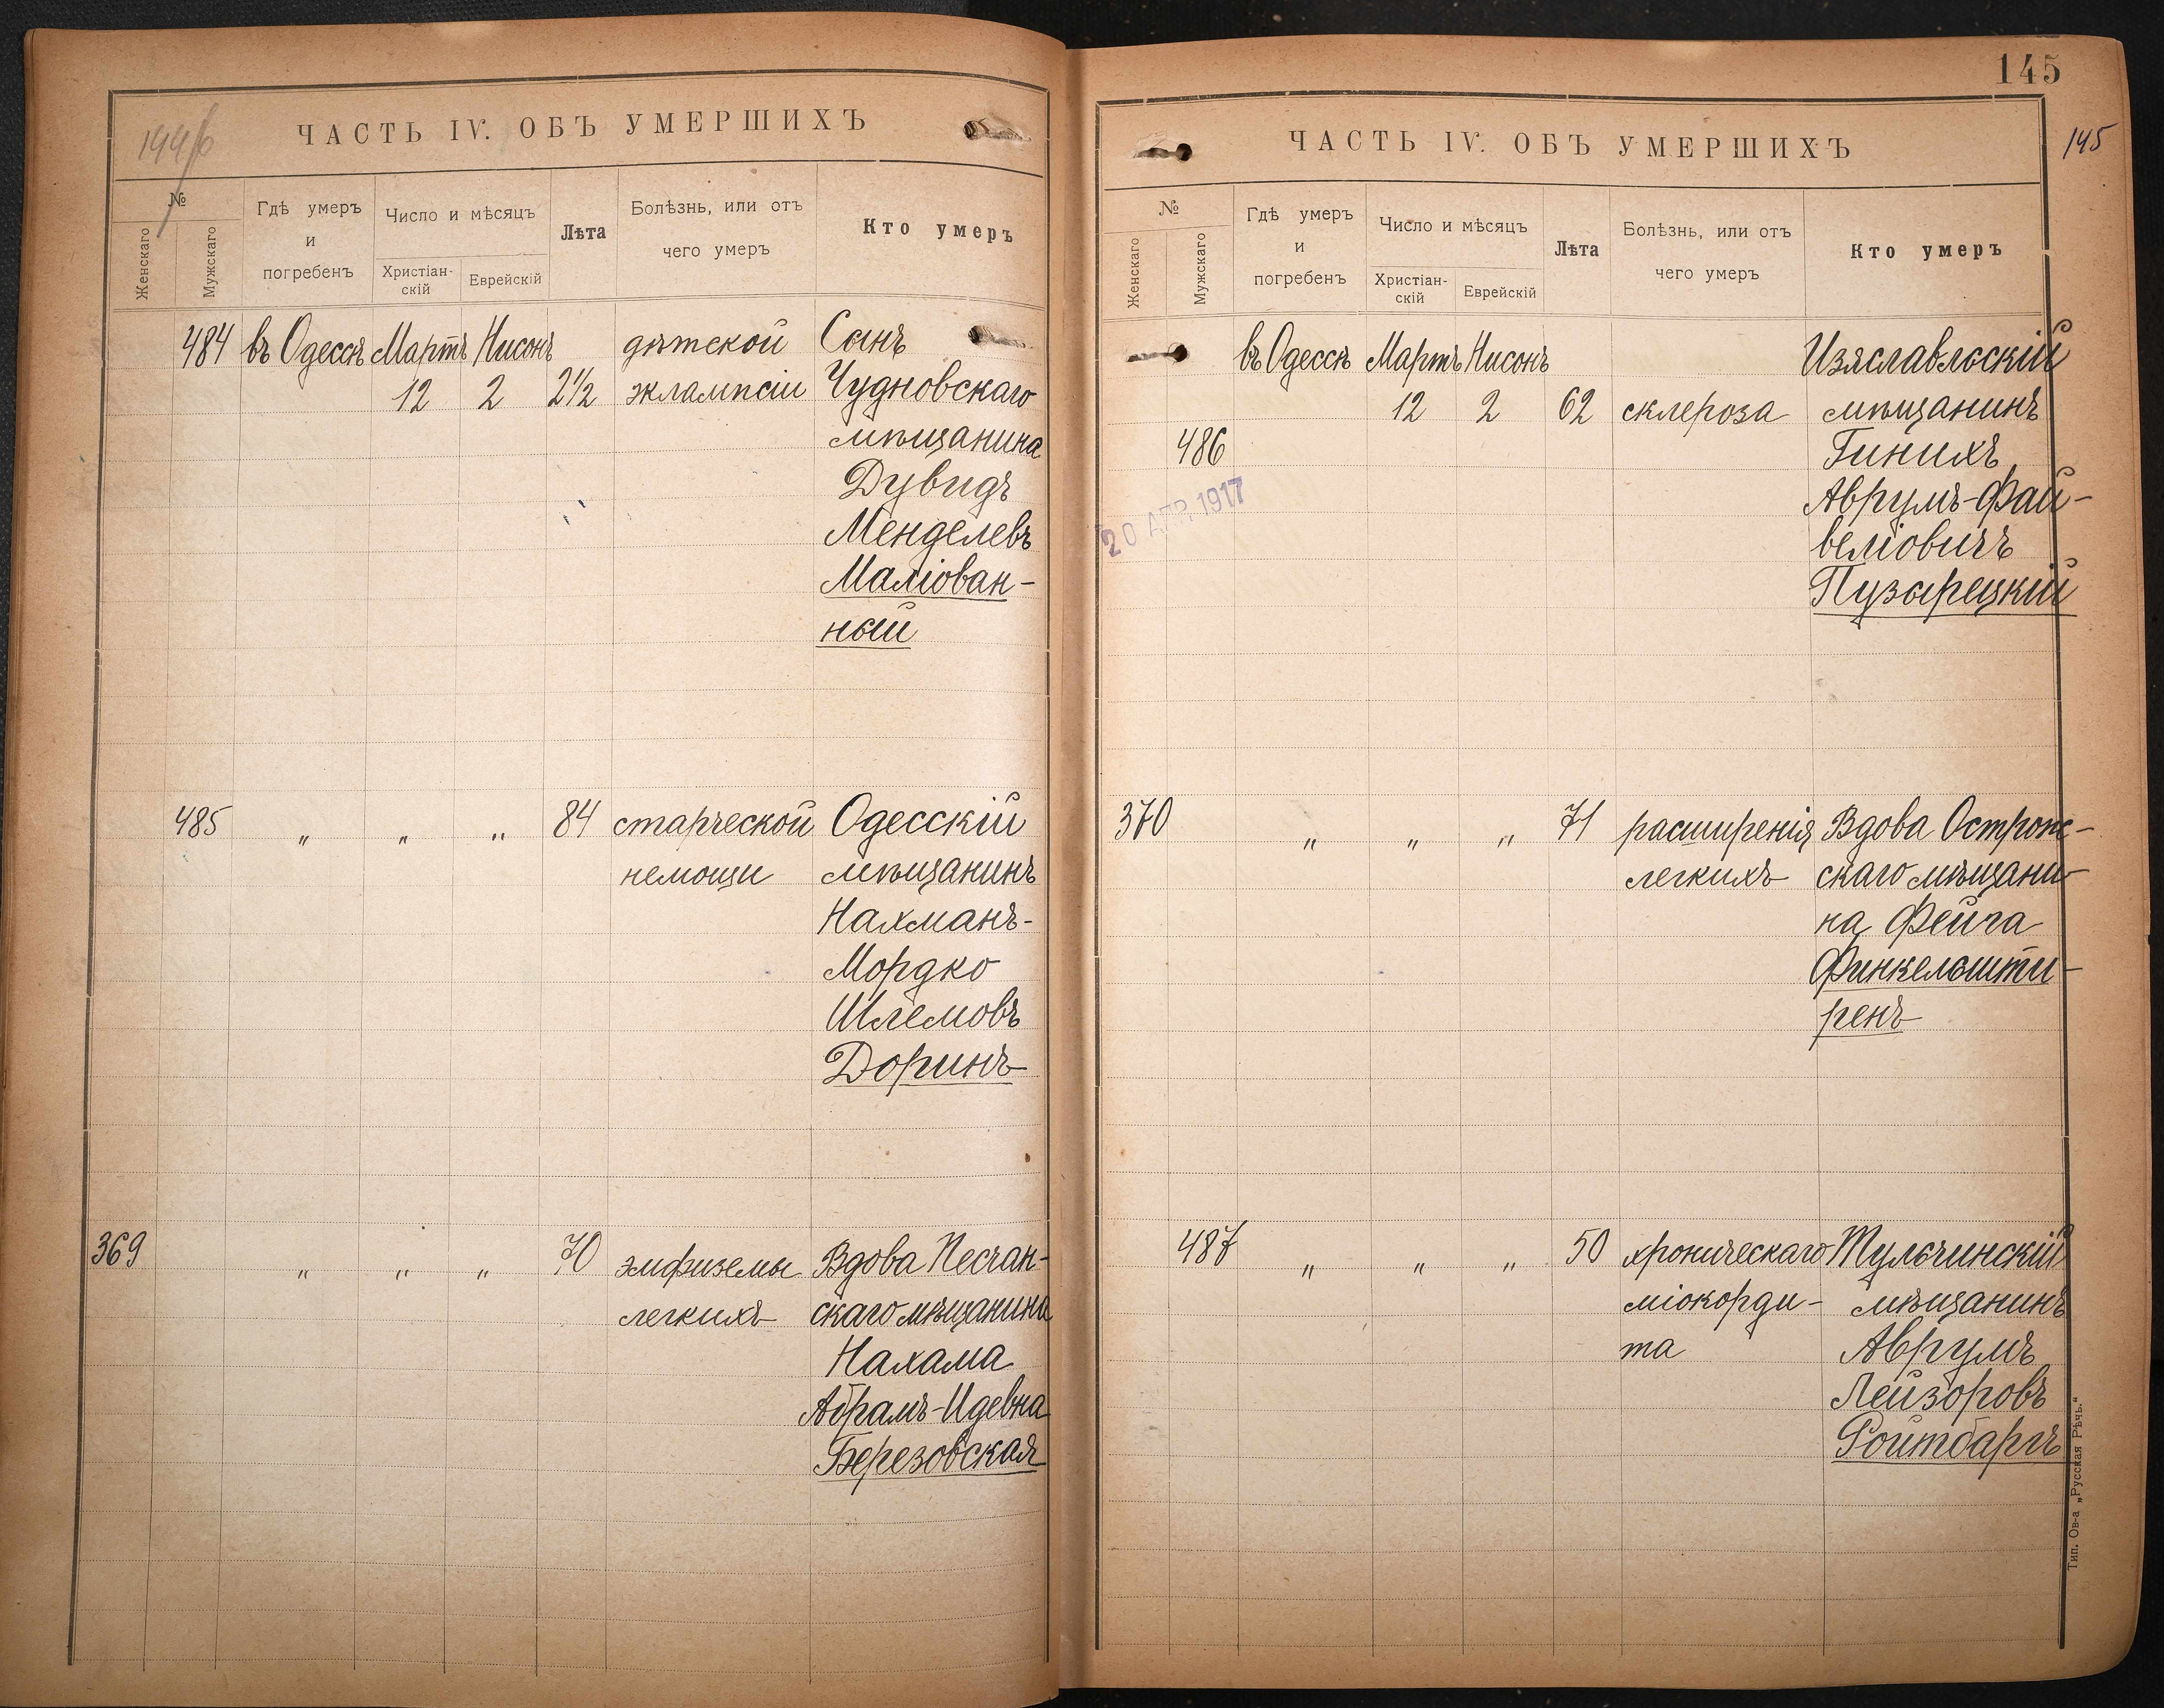 144б
ЧАСТЬ IV. ОБЪ УМЕРШИХЪ
№
Женскаго
Мужскаго
Гдѣ умеръ
и
погребенъ
Число и мѣсяцъ
Христіан-
скій
Еврейскій
Лѣта
Болѣзнь, или отъ
чего умеръ
Кто умеръ
484 въ Одессѣ Мартъ Нисонъ дѣтской Сынъ
12 2 2½ эклампсіи Чудновскаго
мѣщанина
Дувидъ
Менделевъ
Маліован-
ный
485 „ „ „ 84 старческой Одесскій
немощи мѣщанинъ
Нахманъ-
Мордко
Шлемовъ
Доринъ
369 „ „ „ 70 эмфиземы Вдова Песчан-
легкихъ скаго мѣщанина
Нахама
Абрамъ-Идевна
Березовская
145
145
ЧАСТЬ IV. ОБЪ УМЕРШИХЪ
№
Женскаго
Мужскаго
Гдѣ умеръ
и
погребенъ
Число и мѣсяцъ
Христіан-
скій
Еврейскій
Лѣта
Болѣзнь, или отъ
чего умеръ
Кто умеръ
въ Одессѣ Мартъ Нисонъ Изяславльскій
12 2 62 склероза мѣщанинъ
486 Гинихъ
Аврумъ-Фай-
веліовичъ
Пузырецкій
20 АПР 1917
370 „ „ „ 71 расширенія Вдова Острож-
легкихъ скаго мѣщани-
на Фейга
Финкельшти-
ренъ
487 „ „ „ 50 хроническаго Тульчинскій
міокорди- мѣщанинъ
та Аврумъ
Лейзоровъ
Ройтбаргъ
Тип. Ов-а „Русская Рѣчь.“